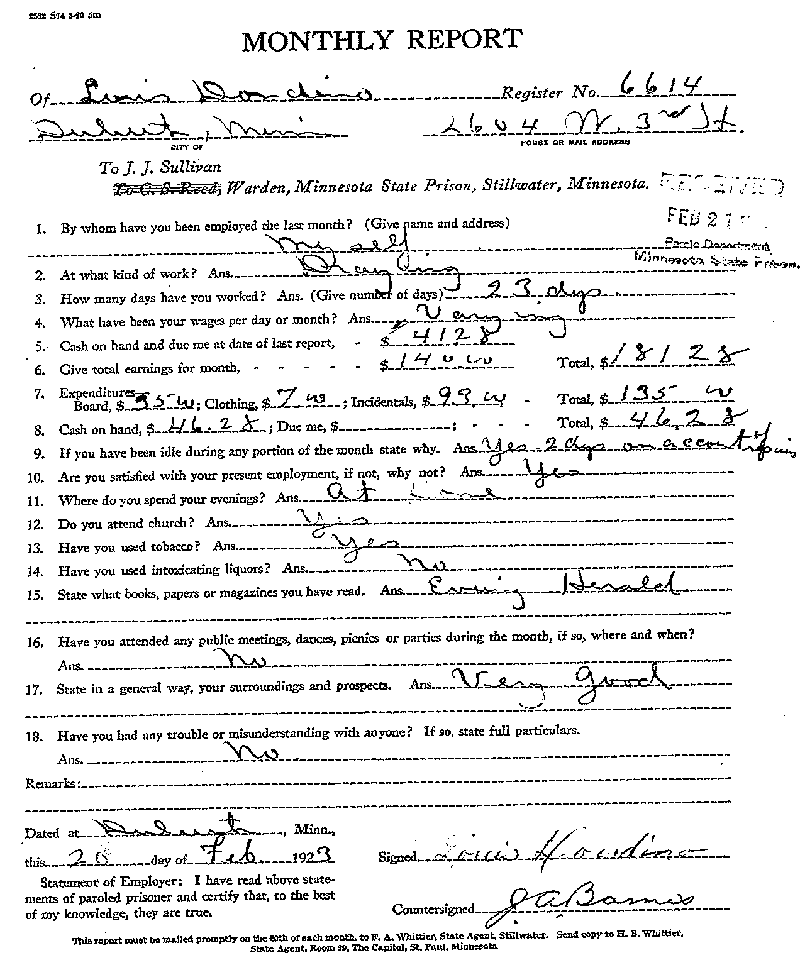 MONTHLY REPORT
Of Louis Dondino Register No. 6614
Duluth, Minn 2604 W. 3rd St.
CITY OF HOUSE OR MAIL ADDRESS
To J. J. Sullivan
To C. S. Reed, Warden, Minnesota State Prison, Stillwater, Minnesota. RECEIVED
FEB 21
Parole Department
Minnesota State Prison.
1. By whom have you been employed the last month? (Give name and address)
My self
2. At what kind of work? Ans. Draying
3. How many days have you worked? Ans. (Give number of days) 23 dys
4. What have been your wages per day or month? Ans. Varying
5. Cash on hand and due me at date of last report, - $ 41 28
6. Give total earnings for month, - - - - - $ 140 00 Total, $ 181 28
7. Expenditures
Board, $ 35 00; Clothing, $ 7 00; Incidentals, $ 93 00 - Total, $ 135 00
8. Cash on hand, $ 46.28; Due me, $ ; - - - Total, $ 46.28
9. If you have been idle during any portion of the month state why. Ans Yes 2 dys on account of
10. Are you satisfied with your present employment, if not, why not? Ans. Yes
11. Where do you spend your evenings? Ans. At home
12. Do you attend church? Ans. Yes
13. Have you used tobacco? Ans. Yes
14. Have you used intoxicating liquors? Ans. No
15. State what books, papers or magazines you have read. Ans. Evning Herald
16. Have you attended any public meetings, dances, picnics or parties during the month, if so, where and when?
Ans. No
17. State in a general way, your surroundings and prospects. Ans. Very good
18. Have you had any trouble or misunderstanding with anyone? If so, state full particulars.
Ans. No
Remarks:
Dated at Duluth, Minn.,
this 20 day of Feb 1923 Signed Louis Dondino
Statement of Employer: I have read above state-
ments of paroled prisoner and certify that, to the best
of my knowledge, they are true. Countersigned J A Barnes
This report must be mailed promptly on the 20th of each month, to F. A. Whittier, State Agent, Stillwater. Send copy to H. B. Whittier,
State Agent, Room 29, The Capitol, St. Paul, Minnesota